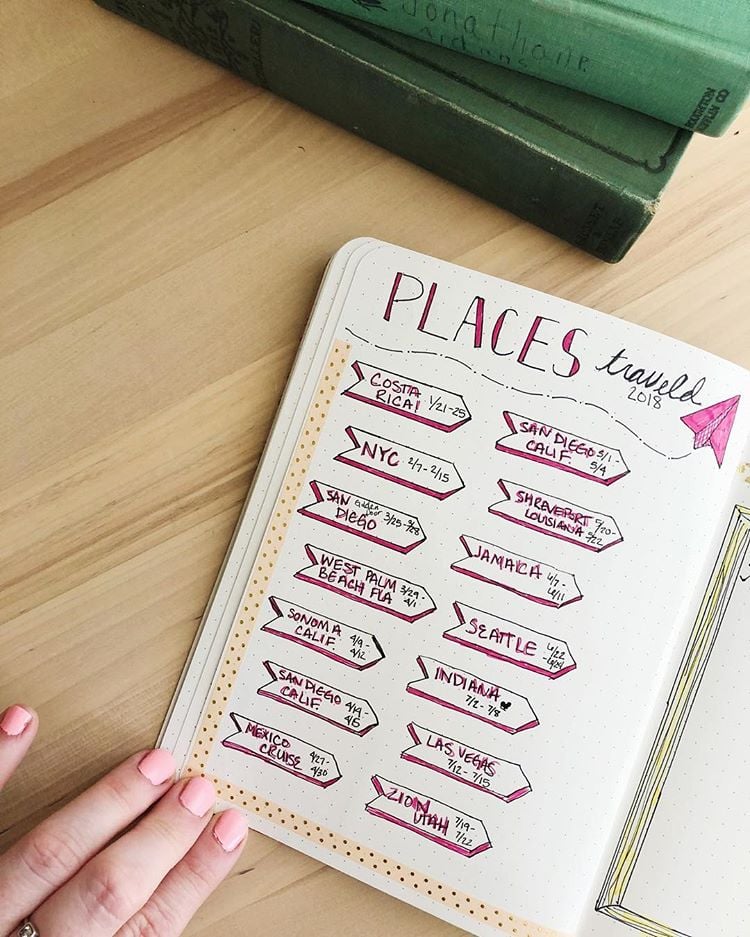 Jonathane
PLACES traveld
2018
COSTA
RICA! 1/21-25
NYC 2/7-2/15
SAN
DIEGO 3/25-3/28
WEST PALM 3/29-
BEACH FLA 4/1
SONOMA
CALIF. 4/9-
4/12
SAN DIEGO
CALIF.
MEXICO
CRUISE 4/27-
4/30
SAN DIEGO 5/1-
CALIF. 5/4
SHREVEPORT 5/20-
LOUISIANA 5/22
JAMAICA
SEATTLE
INDIANA
7/2-7/8
LAS VEGAS
7/12-7/15
ZION
UTAH 7/19-
7/22